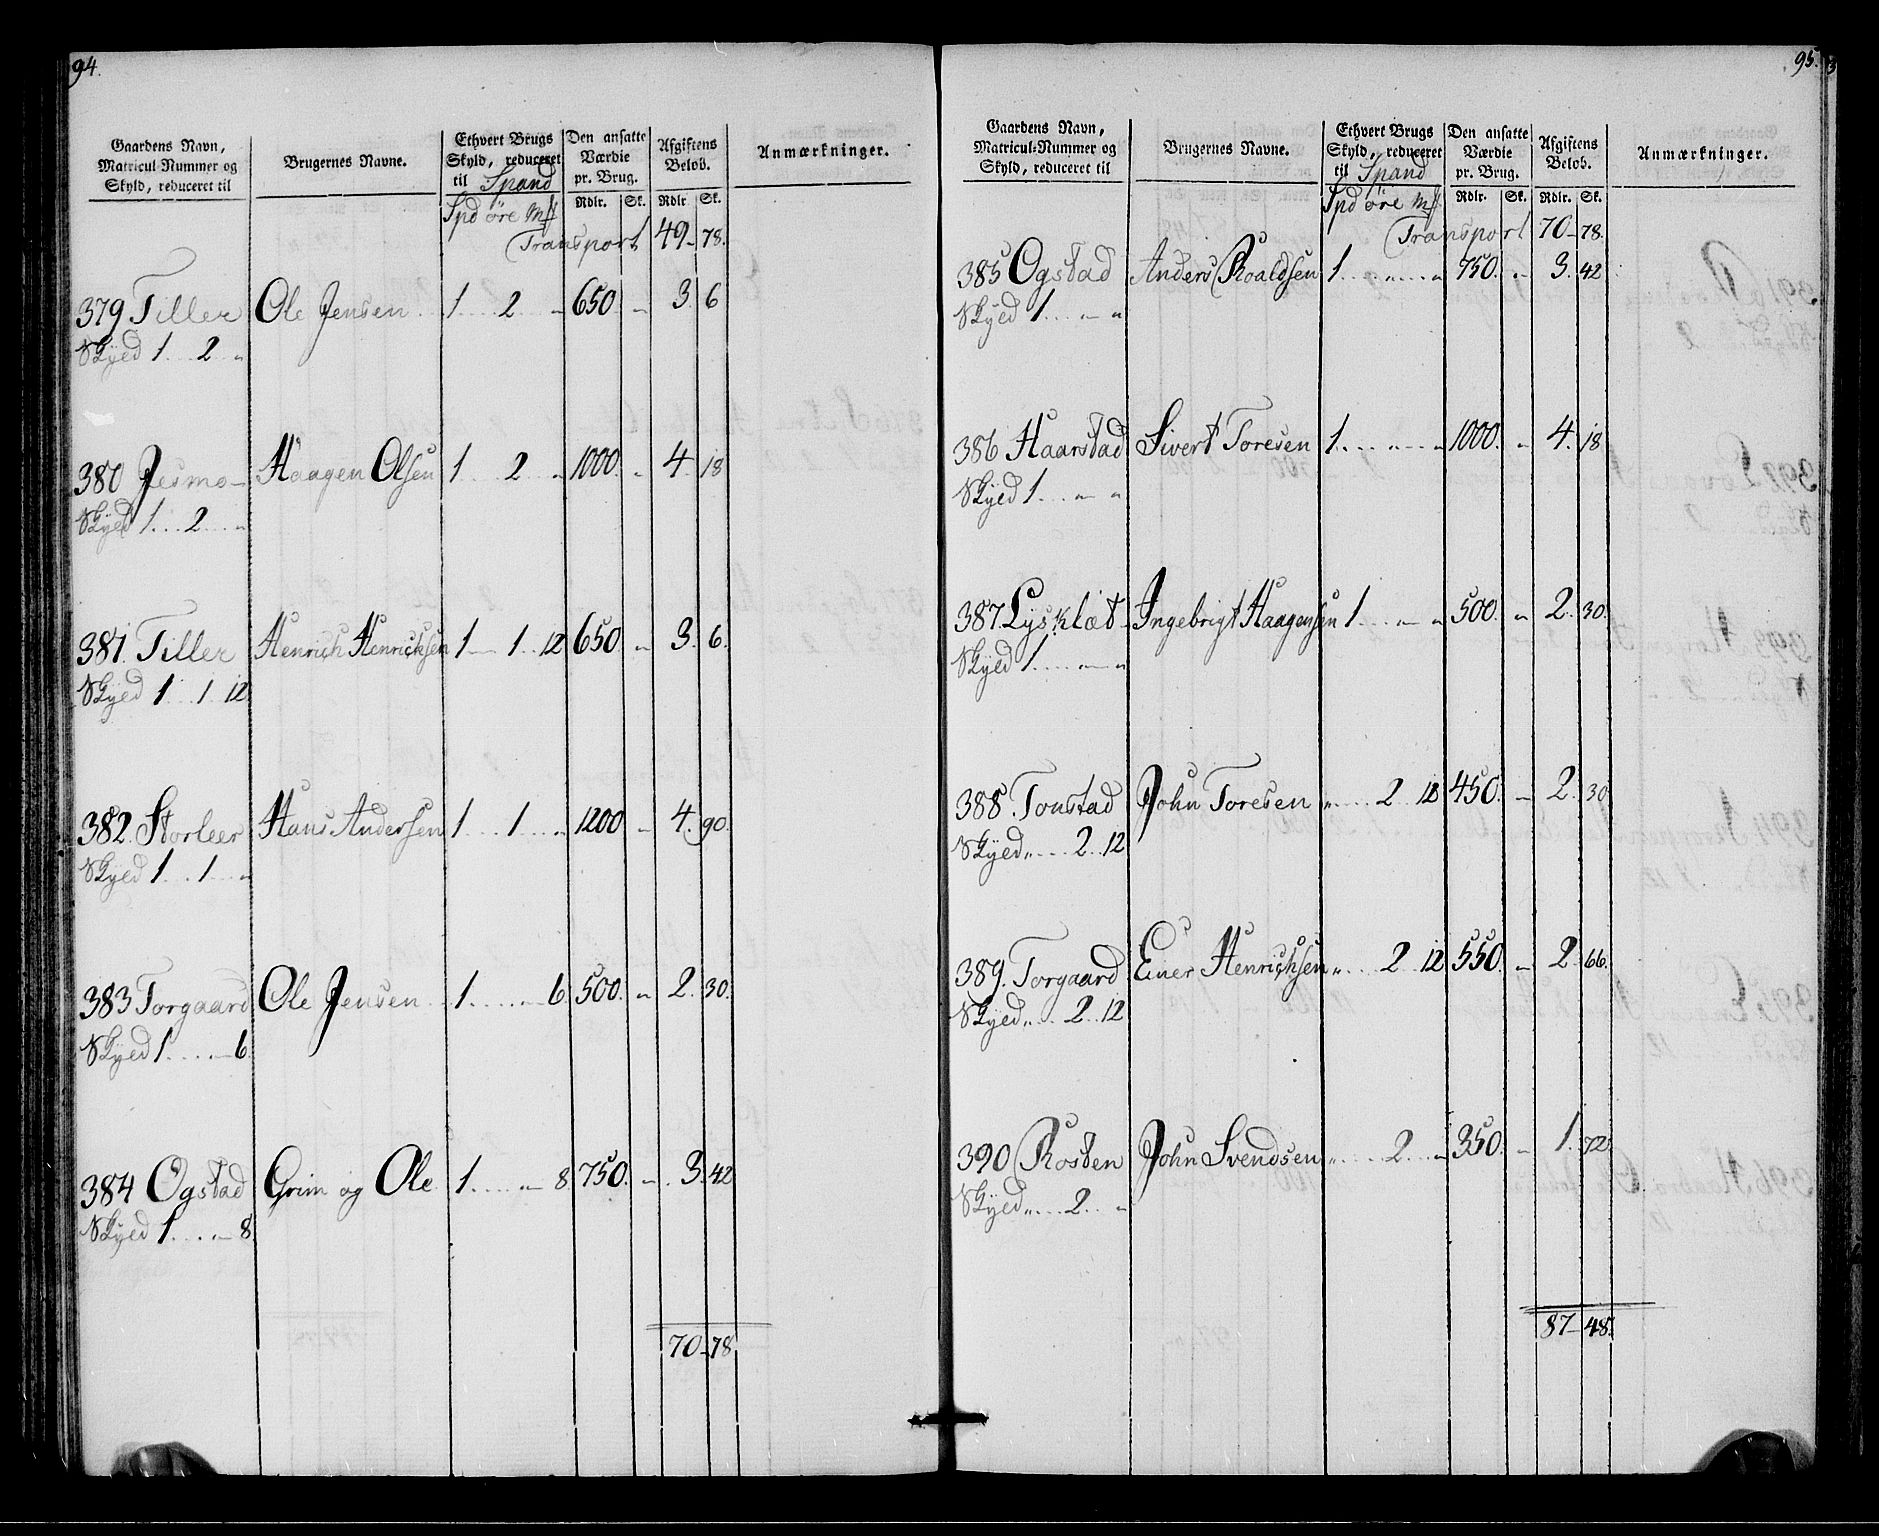 94.
Gaardens Navn, Matricul-Nummer og Skyld, reduceret til | Brugernes Navne. | Ethvert Brugs Skyld, reduceret til Spand | Den ansatte Værdie pr. Brug. | Afgiftens Beløb. | Anmærkninger.
Spd öre Mk | Rdlr. Sk. | Rdlr Sk.
Transport 49 - 78.
379 Tiller Ole Jensen 1 .... 2 " 650 " 3. 6
Skyld 1 ... 2 "
380 Jesmo Haagen Olsen 1 .... 2 " 1000. " 4. 18
Skyld 1 ... 2 ... "
381. Tiller Henrich Henrichsen 1 .... 1 .. 12 650 " 3. 6.
Skyld 1 ... 1 .. 12
382. Storleer Hans Andersen 1 .... 1 ... " 1200 " 4. 90.
Skyld 1 ... 1 ... "
383 Torgaard Ole Jensen 1 ..... " 6. 500. " 2. 30.
Skyld 1 ..... " 6.
384 Ogstad Grim og Ole 1 ..... " 8 750. " 3. 42
Skyld 1 ..... " 8.
70 - 78
95.
Gaardens Navn, Matricul-Nummer og Skyld, reduceret til | Brugernes Navne. | Ethvert Brugs Skyld, reduceret til Spand | Den ansatte Værdie pr. Brug. | Afgiftens Beløb. | Anmærkninger.
Spd öre Mk | Rdlr. Sk. | Rdlr. Sk.
Transport 70 - 78.
385 Ogstad Anders Roaldsen 1 ... " ... " 750. " 3. 42
Skyld 1 ... " "
386 Haarstad Sivert Toresen 1 ..... " ... " 1000. " 4. 18
Skyld 1 ... " "
387. Lysklæt Ingebrigt Haagensen 1 .... " " 500. " 2. 30.
Skyld 1 ..... " "
388. Tonstad John Toresen " .... 2 ... 12 450. " 2. 30
Skyld " .... 2 .. 12
389. Torgaard Einer Henrichsen " .... 2 .. 12 550. " 2. 66.
Skyld " .... 2 .. 12
390 Rosten John Svendsen " .... 2 .... " 350. " 1. 72
Skyld " .... 2 ... "
87 - 48.